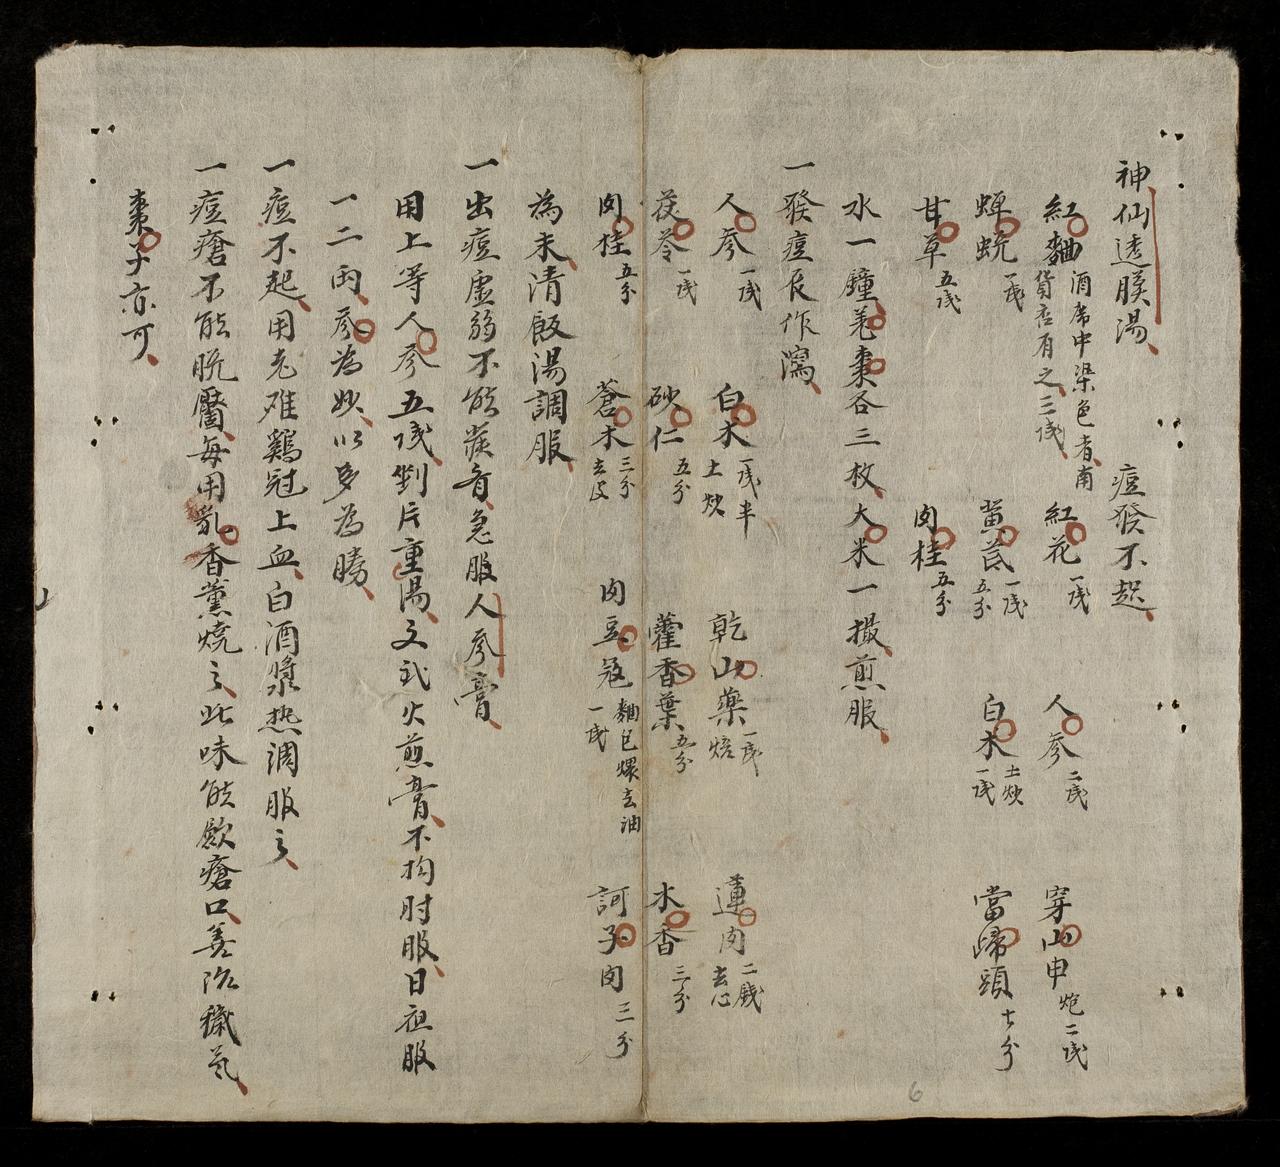 神仙透膜湯　痘發不起
紅麯酒席中染色者南貨店有之三戋　紅花一戋　人參二戋　穿山甲炮二戋
蟬蛻一戋　黄芪一戋五分　白朮土炒一戋　當歸頭七分
甘草五戋　肉桂五分
水一鐘羌棗各三枚大米一撮煎服
一發痘長作瀉
人參一戋　白朮一戋半土炒　乾山藥一戋焙　蓮肉二錢去心
茯苓一戋　砂仁五分　藿香葉五分　木香三分
肉桂五分　蒼朮三分去皮　肉豆蔻麯包煨去油一戋　訶子肉三分
為末清飯湯調服
一出痘虛弱不能發者急服人參膏
用上等人參五戋剉片重湯文武火煎膏不拘时服日徂服
一二兩參為妙以多為勝
一痘不起用老雄鷄冠上血白酒漿热調服之
一痘瘡不能脫靨每用乳香薰燒之此味能歛瘡口善除穢氣
棗子亦可
6